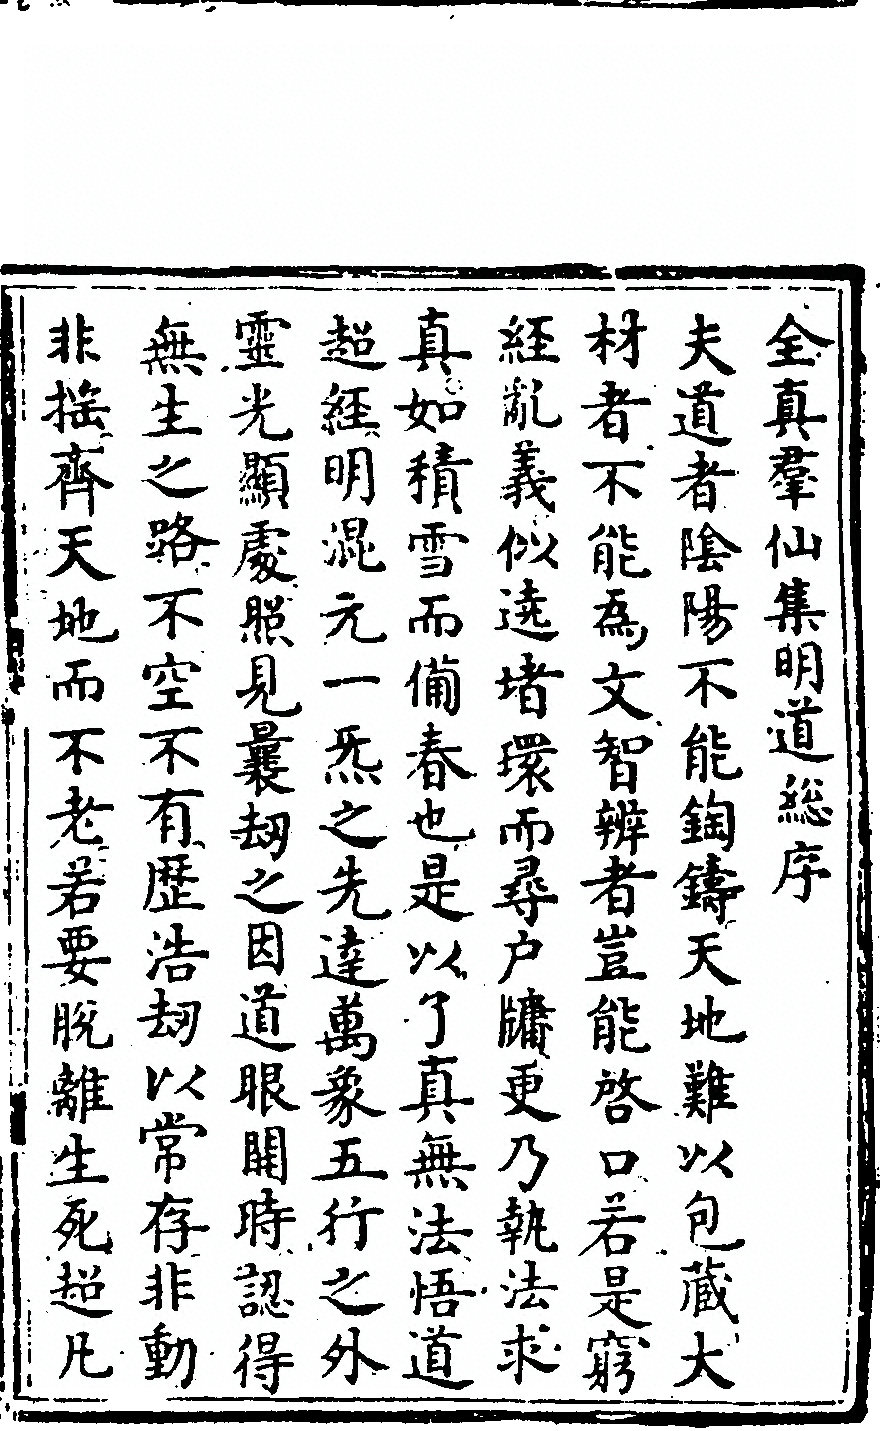 全真羣仙集明道総序
夫道者陰陽不能鋾鑄天地難以包藏大
材者不能為文智辨者豈能啓口若是窮
経亂義似遶堵環而尋户牗更乃執法求
真如積雪而備春也是以了真無法悟道
超経明混元一炁之先達萬象五行之外
靈光顯處照見曩刼之因道眼開時認得
無生之路不空不有歷浩刼以常存非動
非揺齊天地而不老若要脫離生死超凡